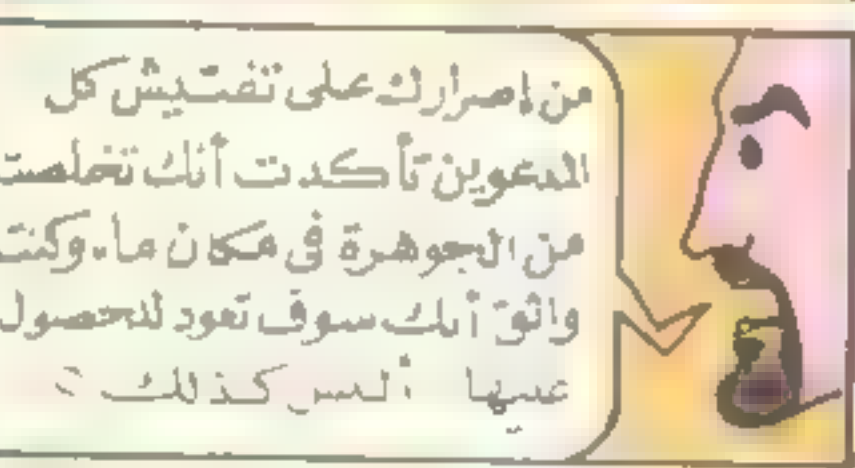 من إصرارك على تفتيش كل
المدعوين تأكدت أنك تخلصت
من الجوهرة فى مكان ما. وكنت
واثق أنك سوف تعود للحصول
عليها أليس كذلك ؟